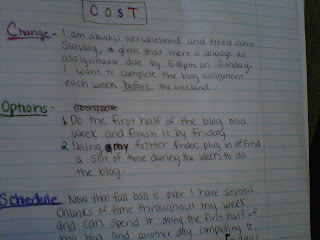 COST
Change - I am always overwhelmed and tired come
Sunday, given that there is always an
assignment due by 6:00pm on Sunday,
I want to complete the blog assignment
each week before the weekend.
Options -
1. Do the first half of the blog mid
week and finish it by friday
2. Using my fritter finder, plug in or find
a slot of time during the week to do
the blog.
Schedule Now that fall ball is over I have several
chunks of time throughout my week
and can spend it doing the first half of
my blog and another day completing it.